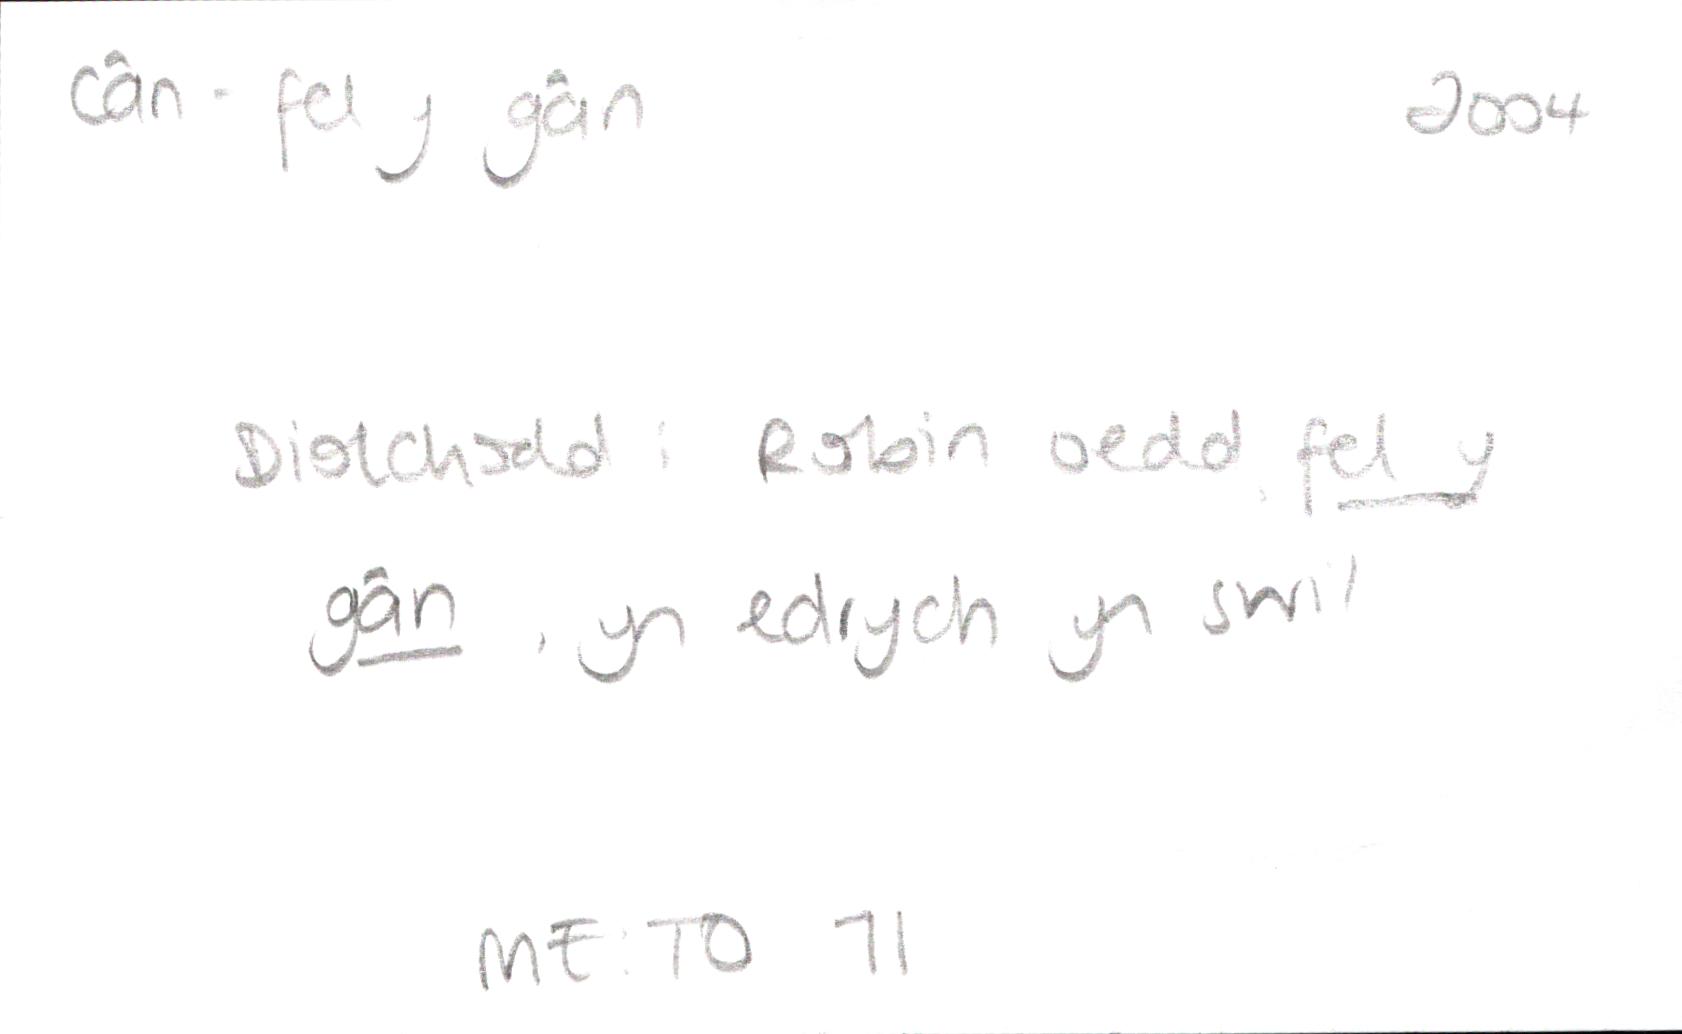 cân - fel y gân 2004
Diolchodd i Robin oedd, fel y
gân, yn edrych yn swil
ME:TO 71